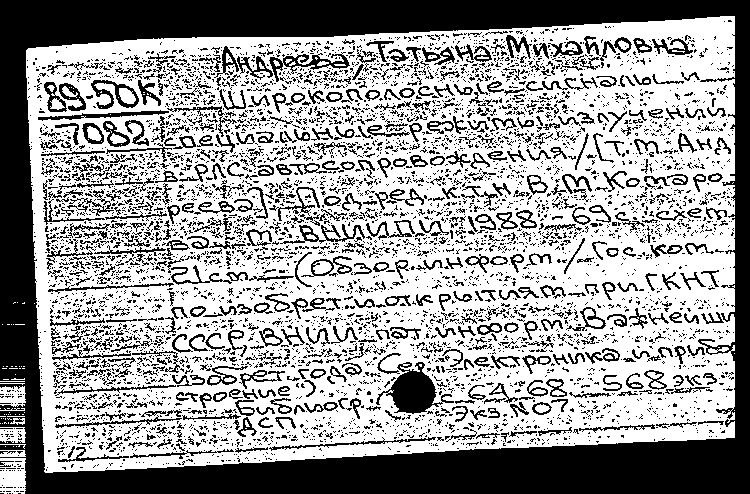 Андреева, Татьяна Михайловна
89-50К
7082
Широкополосные сигналы и
специальные режимы излучений
в РЛС автосопровождения / [Т.М. Анд
реева]; Под ред. к.т.н. В.М. Комаро
ва. - М.: ВНИИПИ, 1988. - 69 с. схем.
21 см. - (Обзор. информ. / Гос. ком.
по изобрет. и открытиям при ГКНТ
СССР, ВНИИ пат. информ. Важнейши
изобрет. года. Сер. "Электроника и прибор
строение")
Библиогр.: с. 64-68. - 568 экз.
ДСП Экз. N07.
12